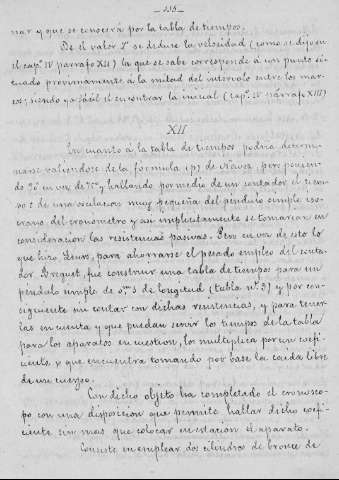 — 115 —
nar y que se conocerá por la tabla de tiempos.
De el valor se deduce la velocidad (como se dijo en
el cap.º IV párrafo XII) la que se sabe corresponde á un punto si-
tuado proximamente á la mitad del intervalo entre los mar-
cos; siendo ya fácil el encontrar la inicial (cap.º IV párrafo XIII)
XII
En cuanto á la tabla de tiempos podria determi-
narse valiéndose de la formula (p) de Navez, pero ponien-
do en vez de y hallando por medio de un contador el tiem-
po de una oscilacion muy pequeña del péndulo simple iso-
crono del cronometro y asi implicitamente se tomarian en
consideracion las resistencias pasivas. Pero en vez de esto lo
que hizo Leurs, para ahorrarse el pesado empleo del conta-
dor Breguet, fue construir una tabla de tiempos para un
péndulo simple de de longitud (tabla n.º 9) y por con-
siguiente sin contar con dichas resistencias, y para tener-
las en cuenta y que puedan servir los tiempos de la tabla
para los aparatos en cuestion, los multiplica por un coefi-
ciente, y que encuentra tomando por base la caida libre
de un cuerpo.
Con dicho objeto ha completado el cronosco-
pio con una disposicion que permite hallar dicho coefi-
ciente sin mas que colocar en estacion el aparato.
Consiste en emplear dos cilindros de bronce de